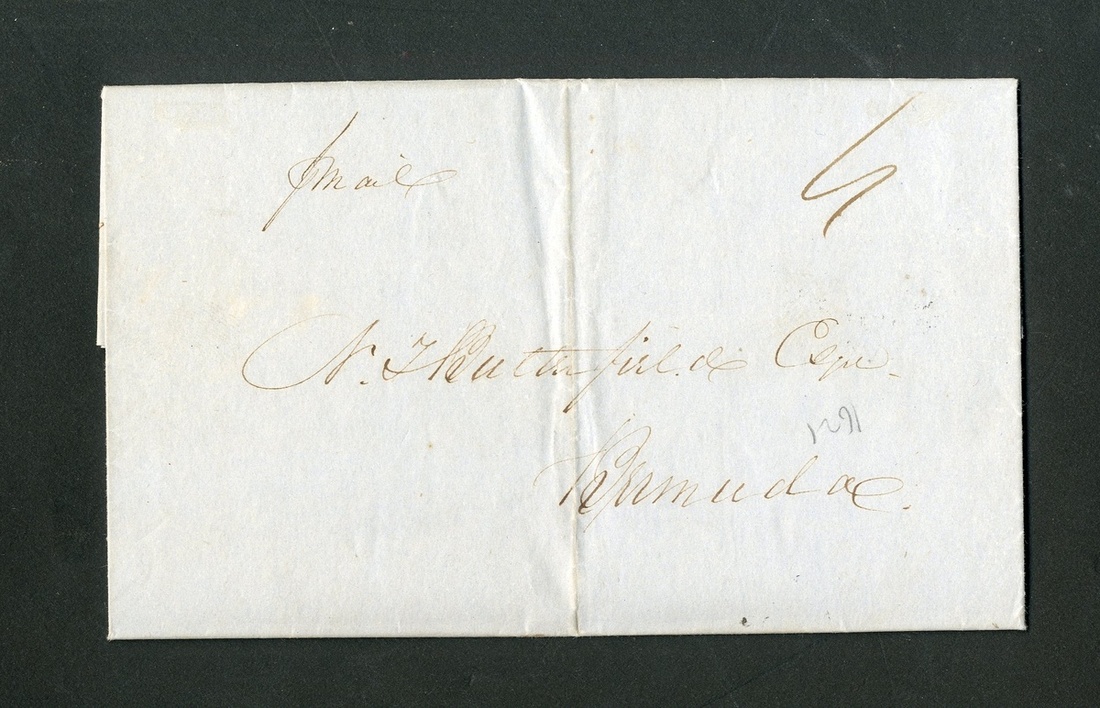 pmail
4
N. T Butterfield Esqr.
Bermuda.